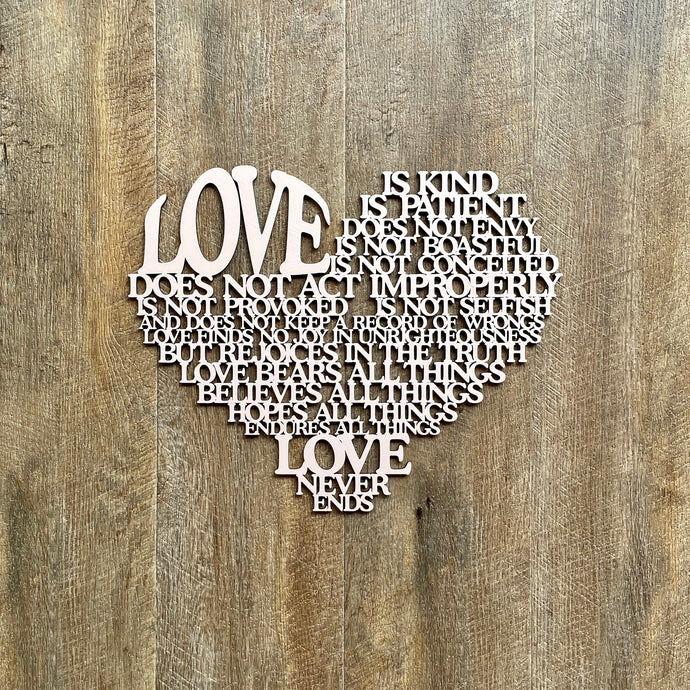 LOVE
IS KIND
IS PATIENT
DOES NOT ENVY
IS NOT BOASTFUL
IS NOT CONCEITED
DOES NOT ACT IMPROPERLY
IS NOT PROVOKED IS NOT SELFISH
AND DOES NOT KEEP A RECORD OF WRONGS
LOVE FINDS NO JOY IN UNRIGHTEOUSNESS
BUT REJOICES IN THE TRUTH
LOVE BEARS ALL THINGS
BELIEVES ALL THINGS
HOPES ALL THINGS
ENDURES ALL THINGS
LOVE
NEVER
ENDS